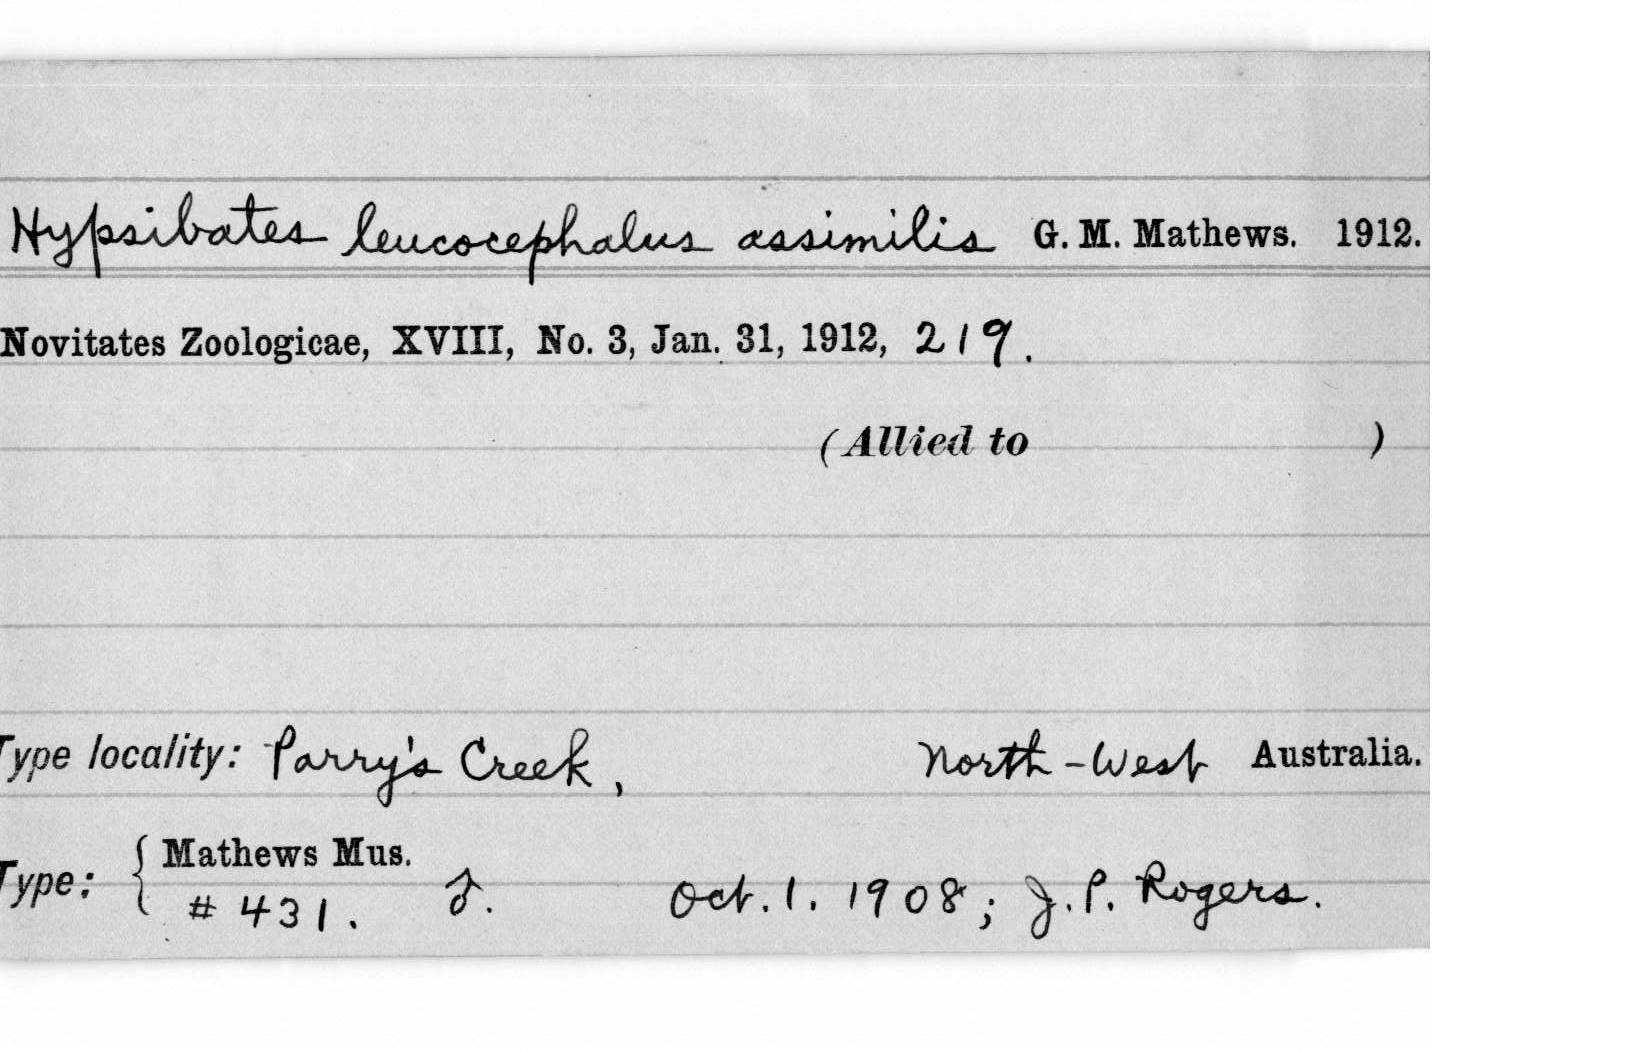 Hypsibates leucocephalus assimilis G. M. Mathews. 1912.
Novitates Zoologicae, XVIII, No. 3, Jan. 31, 1912, 219.
(Allied to )
Type locality: Parry's Creek, North-West Australia.
Type: { Mathews Mus.
# 431. ♂. Oct. 1. 1908; J. P. Rogers.